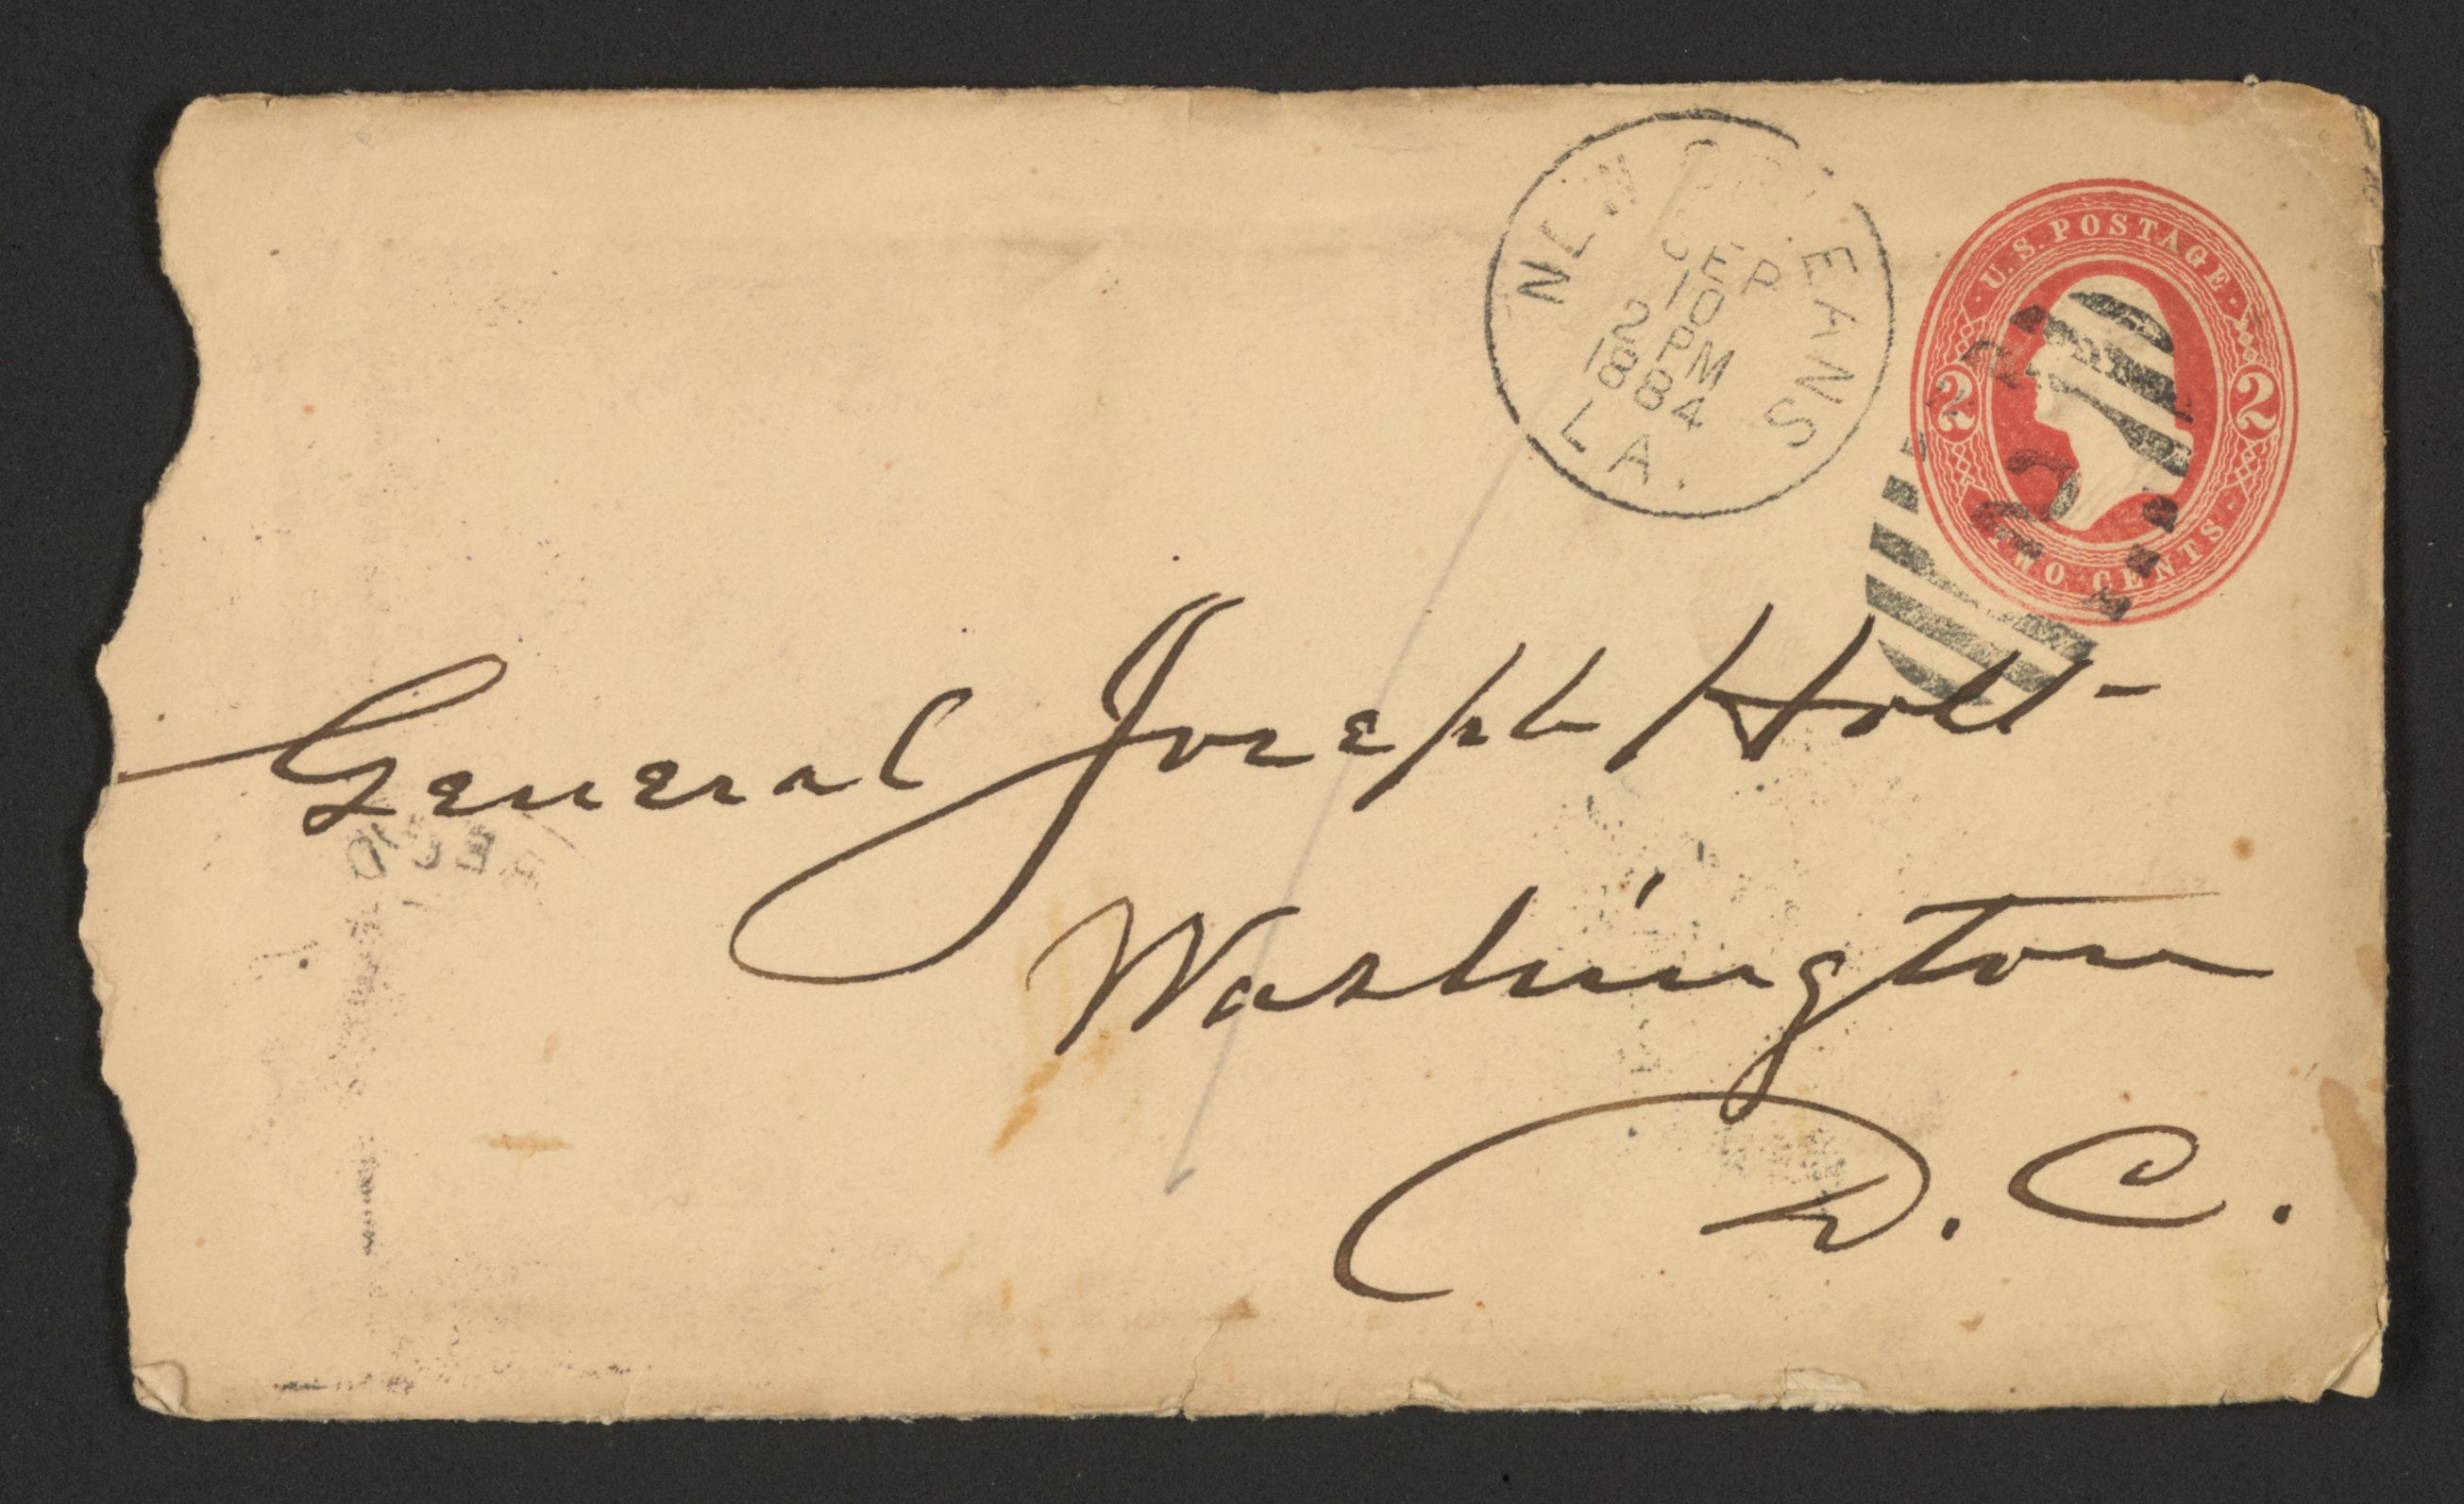 NEW ORLEANS
SEP
10
2 PM
1884
LA.
U.S. POSTAGE
2 2
TWO CENTS
2
General Joseph Holt
Washington
D. C.
REC'D